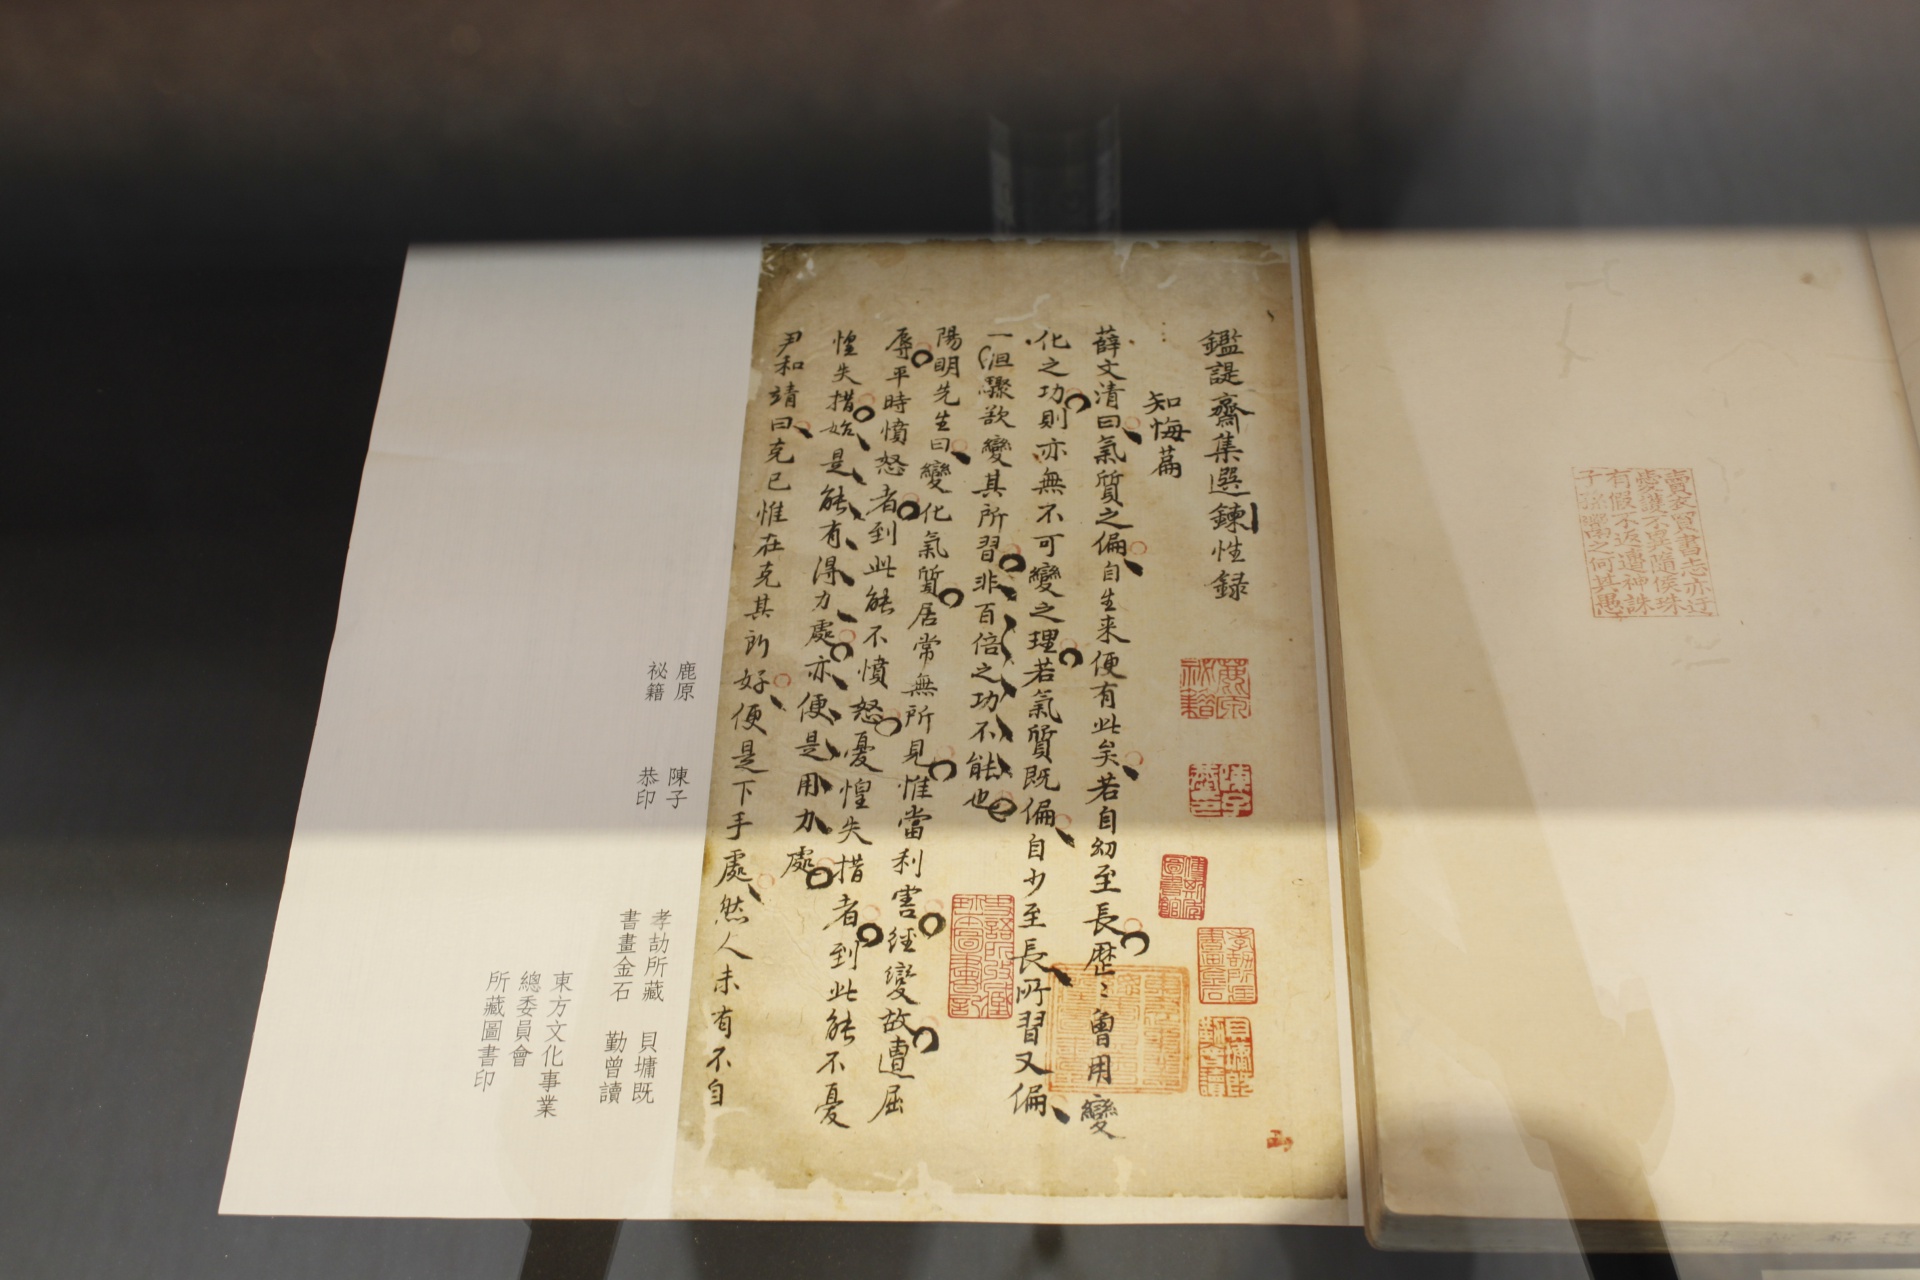 賣衣買書志亦迂
愛護不異隨侯珠
有假不返遭神誅
子孫鬻之何其愚
鑑諟齋集選鍊性録
知悔篇
薛文清曰氣質之偏自生来便有此矣若自幼至長歷〻曽用變
化之功則亦無不可變之理若氣質既偏自少至長所習又偏
一沮驟欲變其所習非百倍之功不能也
陽明先生曰變化氣質居常無所見惟當利害經變故遭屈
辱平時憤怒者到此能不憤怒憂惶失措者到此能不憂
惶失措始是能有得力處亦便是用力處
尹和靖曰克己惟在克其所好便是下手處然人未有不自
鹿原
祕籍
陳子
恭印
史語所收藏
珍本圖書記
鹿原
祕籍
陳子
恭印
孝劼所藏
書畫金石
貝墉既
勤曾讀
東方文化事業
總委員會
所藏圖書印